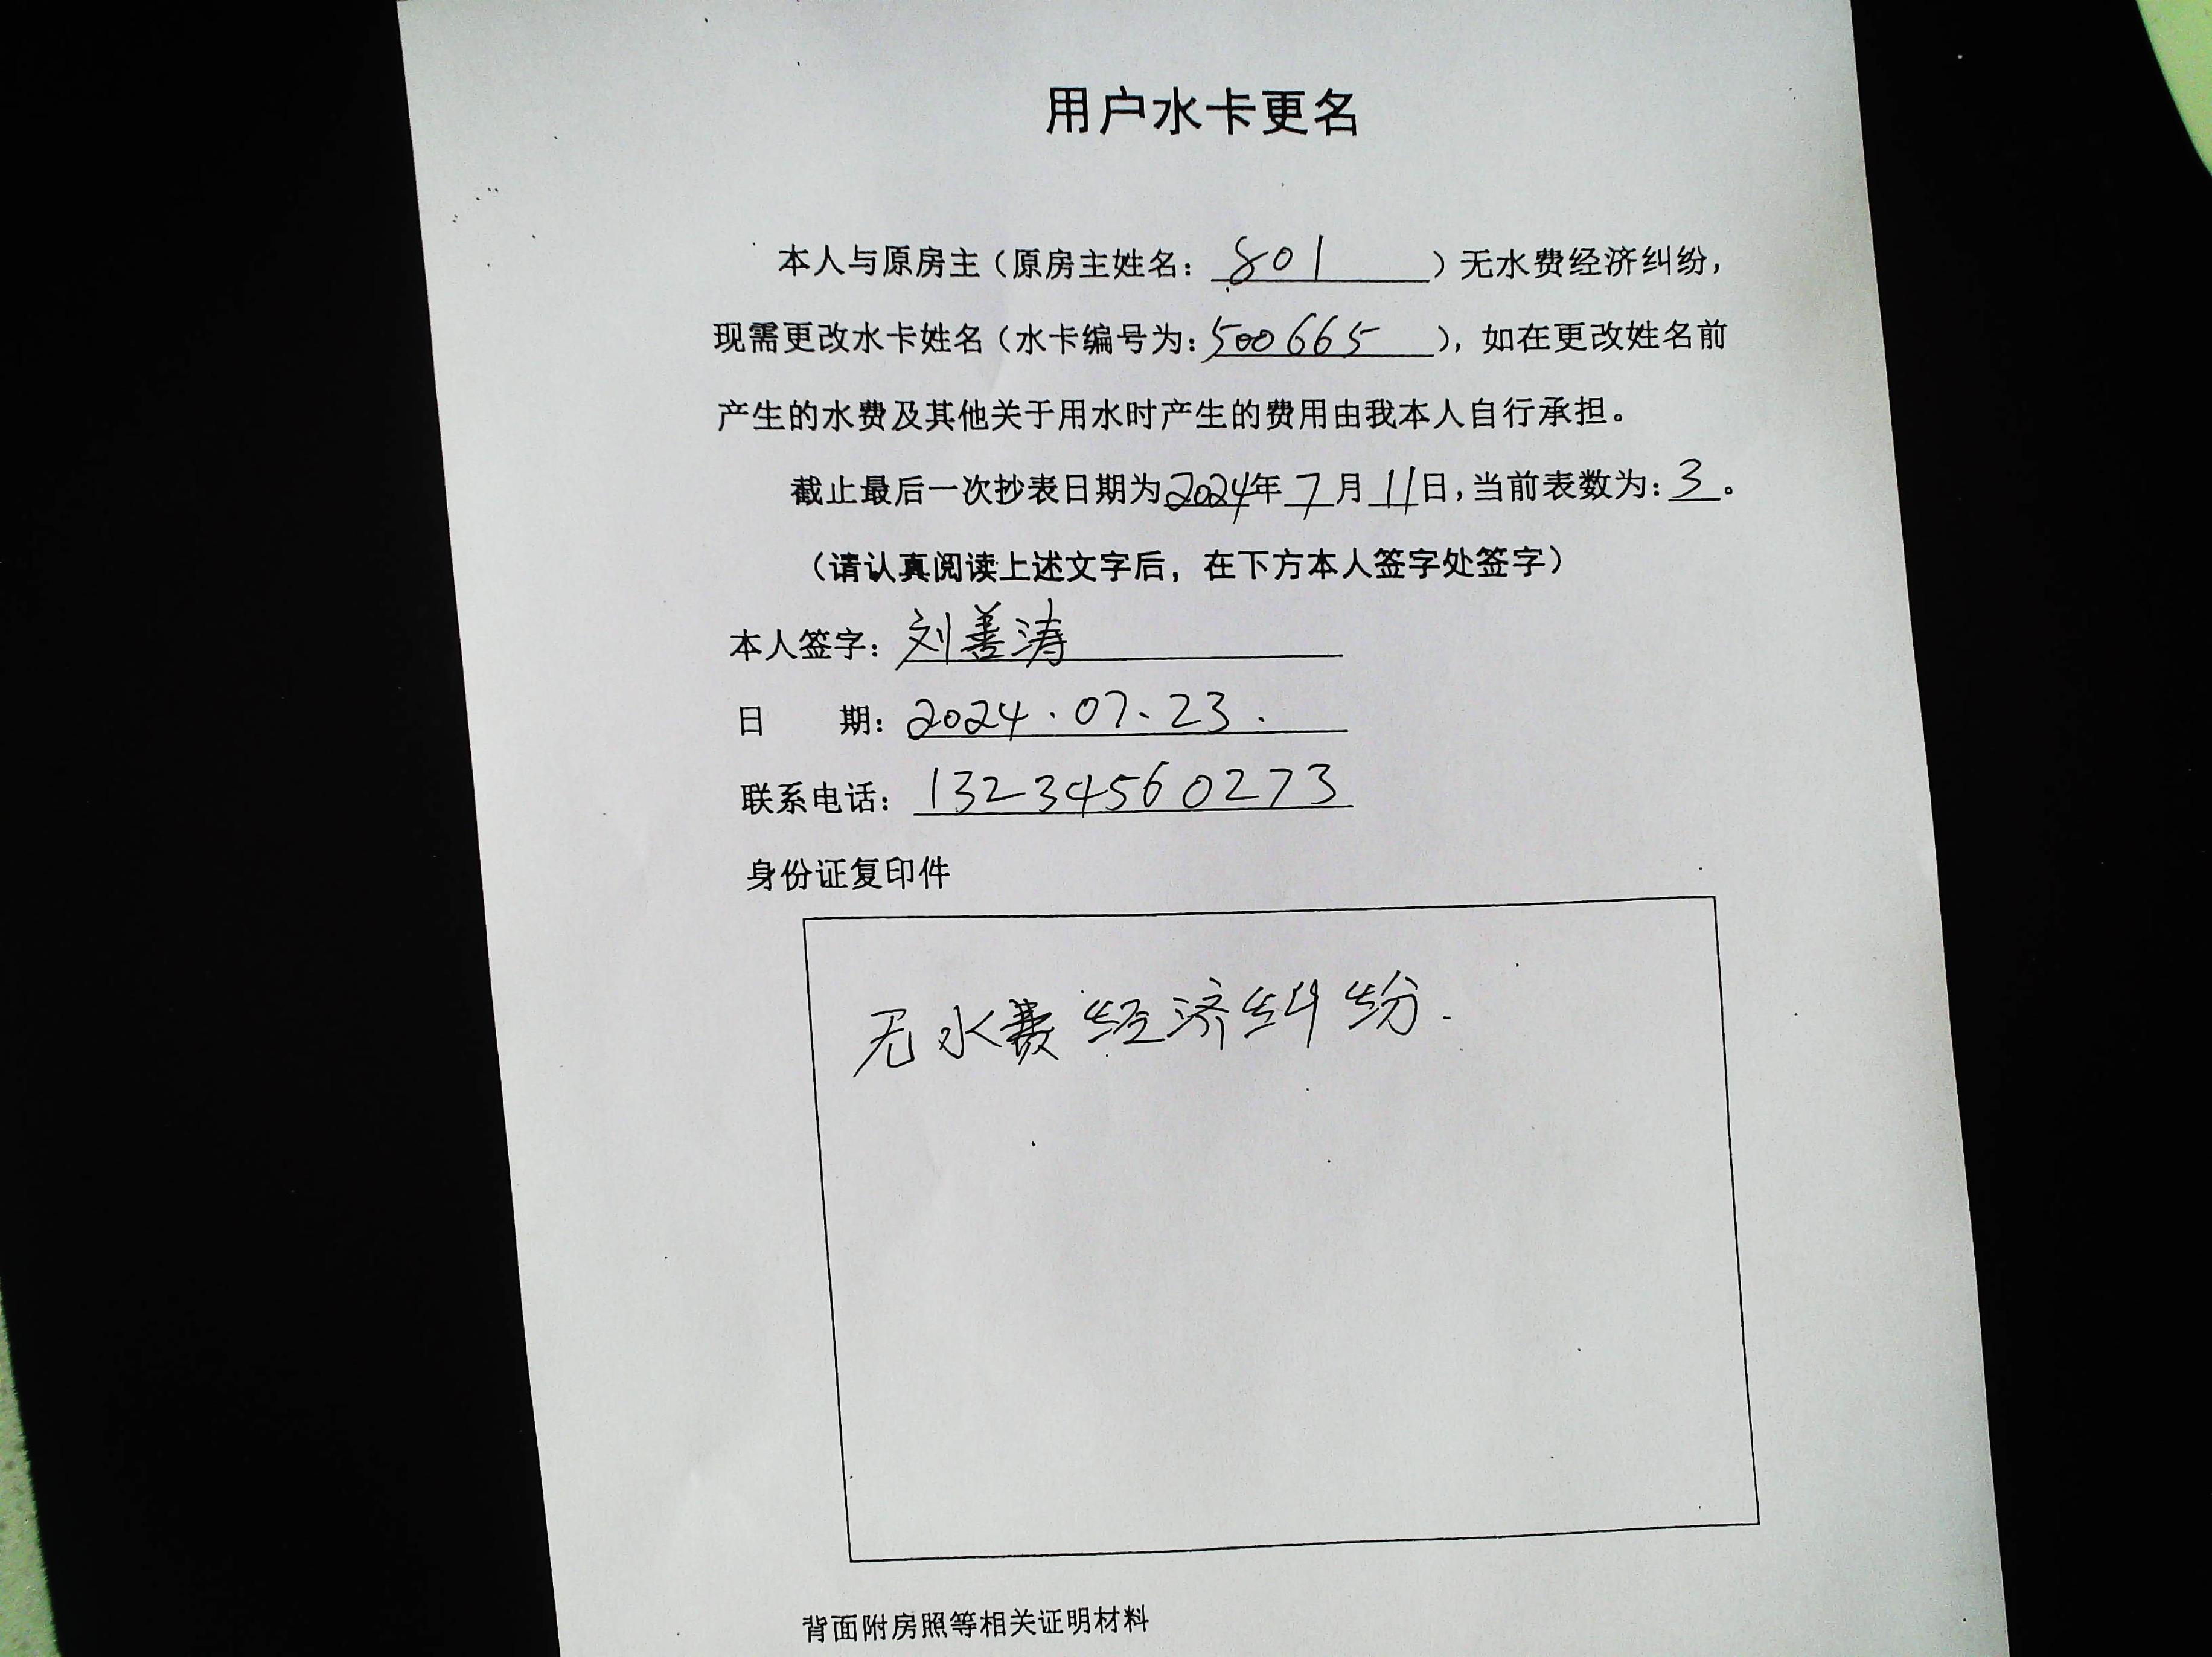 用户水卡更名
本人与原房主（原房主姓名：801）无水费经济纠纷，
现需更改水卡姓名（水卡编号为：500665），如在更改姓名前
产生的水费及其他关于用水时产生的费用由我本人自行承担。
截止最后一次抄表日期为2024年7月11日，当前表数为：3。
（请认真阅读上述文字后，在下方本人签字处签字）
本人签字：刘善涛
日 期：2024.07.23.
联系电话：13234560273
身份证复印件
无水费经济纠纷.
背面附房照等相关证明材料